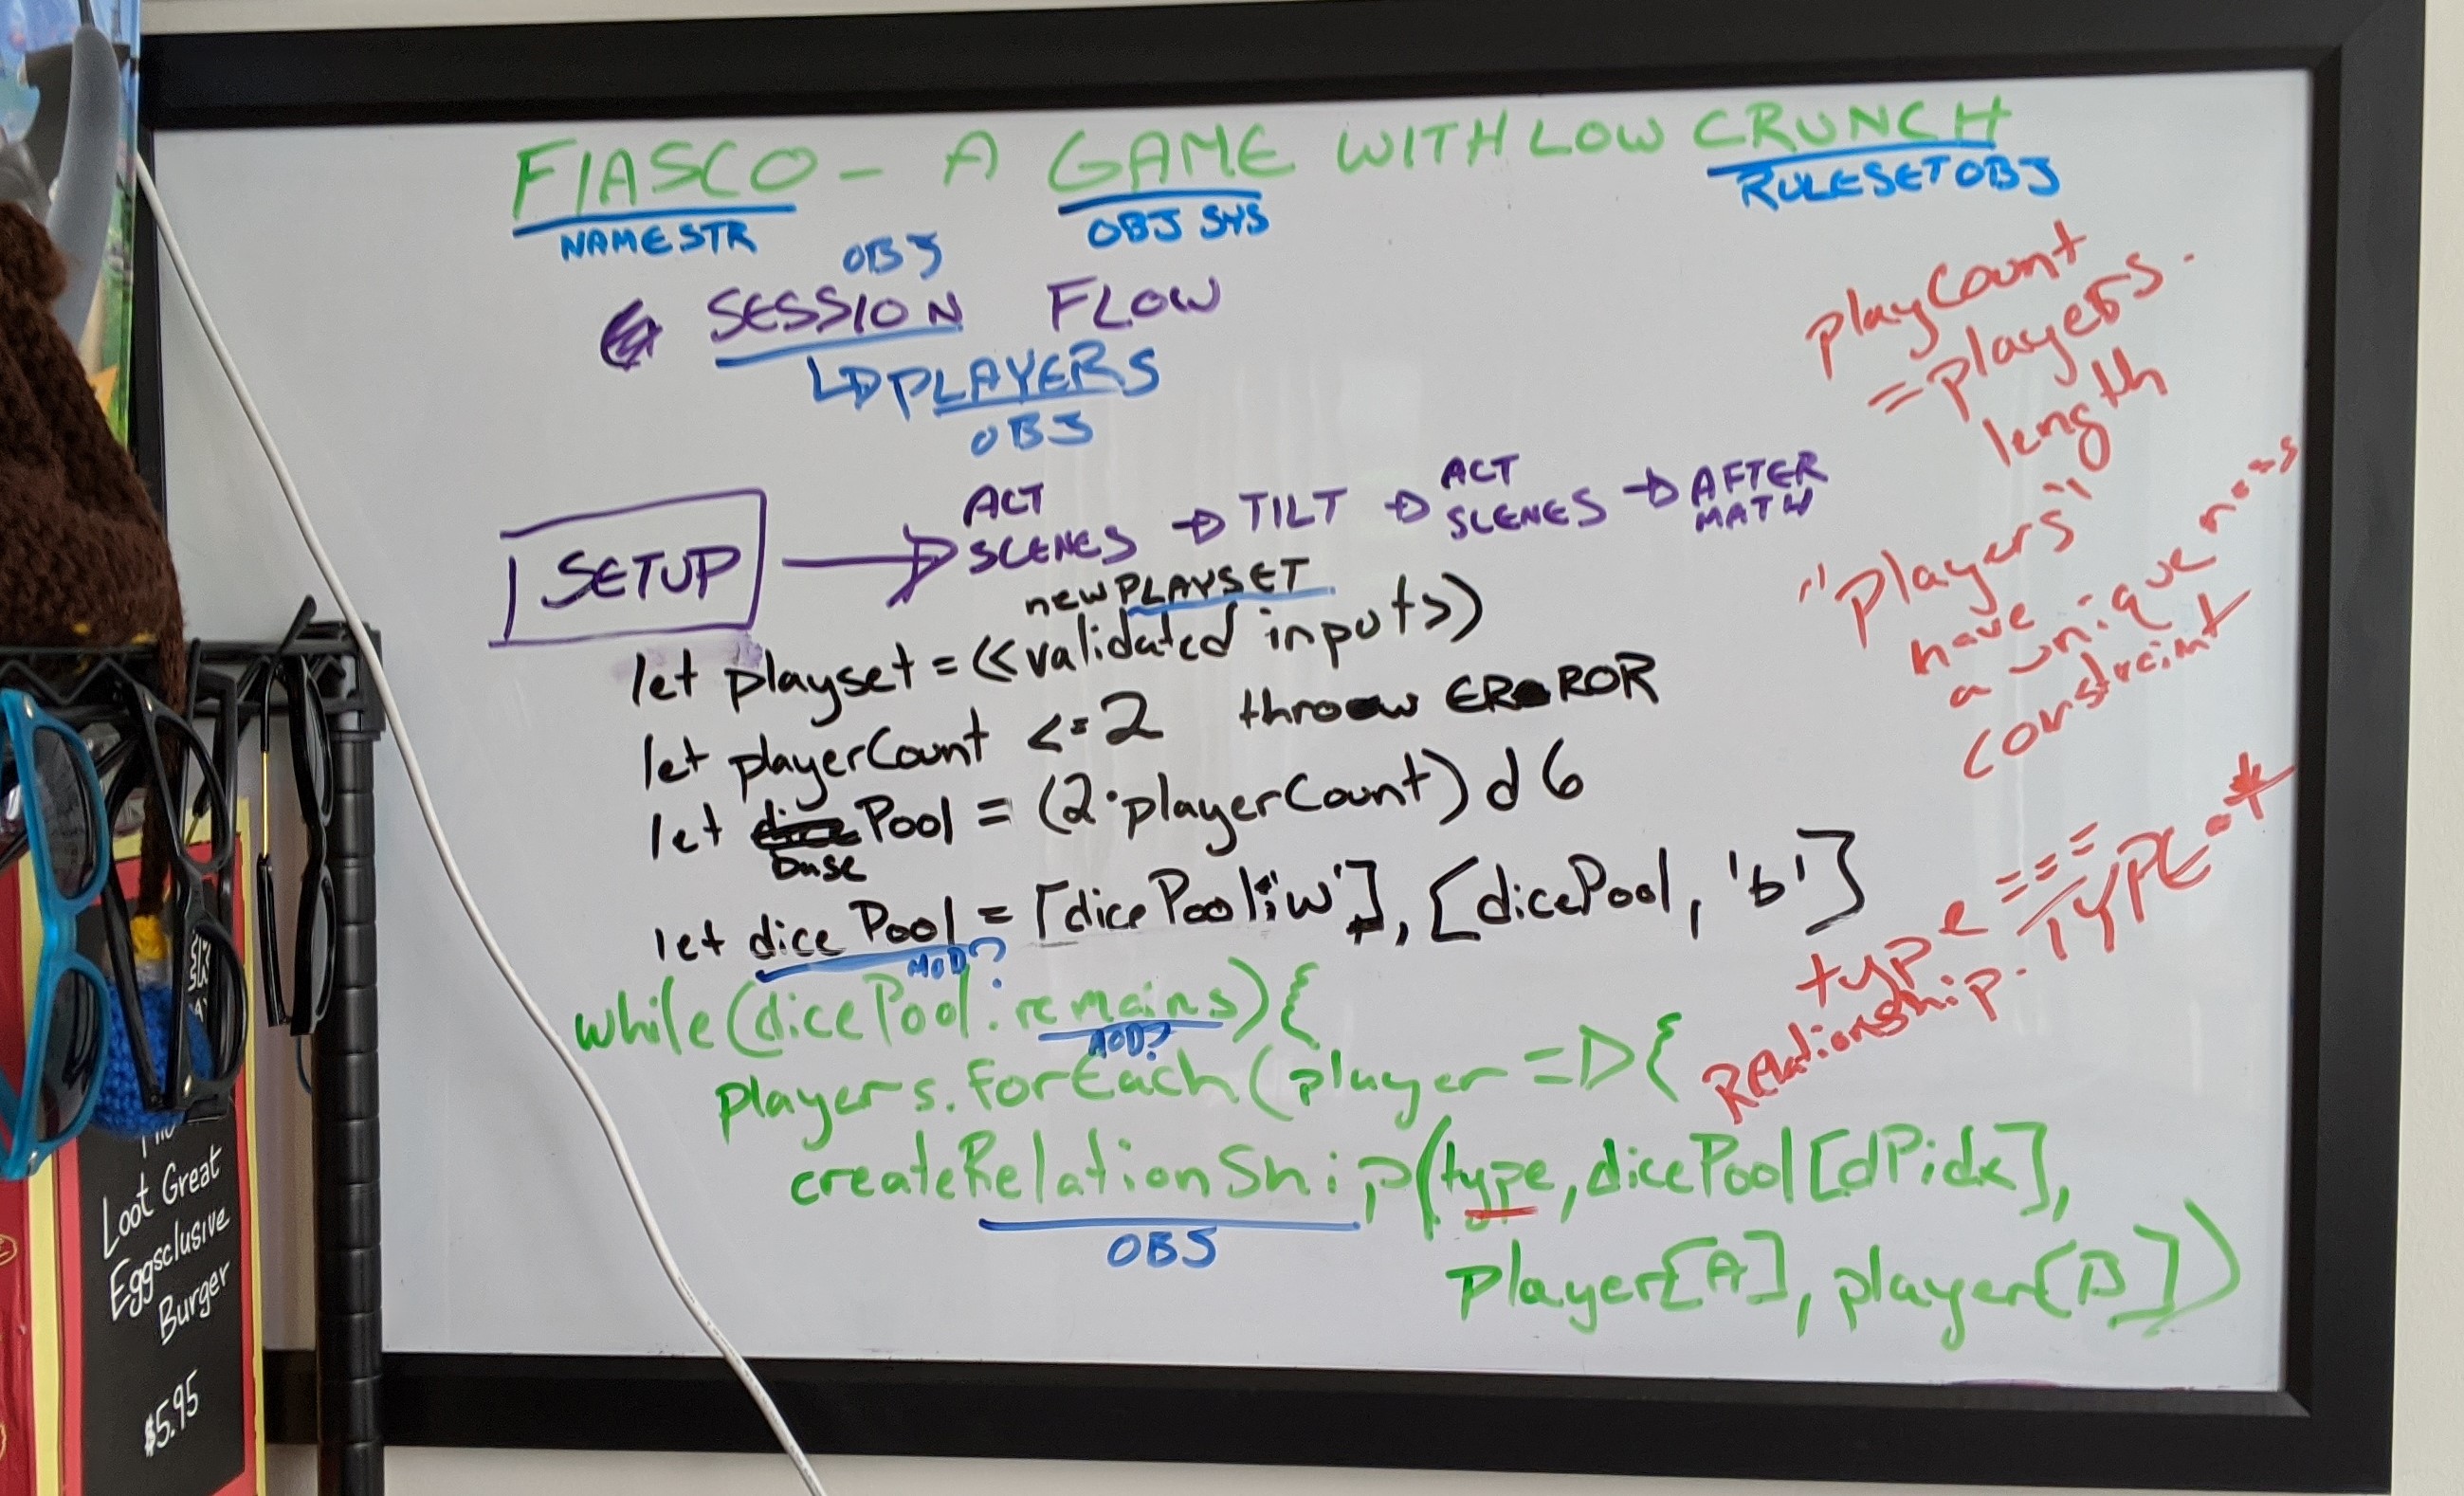 FIASCO - A GAME WITH LOW CRUNCH
NAME STR
OBJ SYS
RULESET OBJ
OBJ
SESSION FLOW
PLAYERS
OBJ
SETUP
ACT
SCENES → TILT →
ACT
SCENES → AFTER
MATH
new PLAYSET
let playset = <<validated inputs>>
let playerCount <= 2 throw ERROR
let Pool = (2·playerCount) d6
base
let dice Pool = [dicePool, 'w'], [dicePool, 'b']
MOD?
while(dicePool.remains){
MOD?
players.forEach(player => {
createRelationShip(type, dicePool[dPidx],
OBJ
Player[A], player[B])
playCount
= players.
length
"Players"
have
a unique
constraint
type ===
Relationship.TYPE.*
Loot Great
Eggsclusive
Burger
$5.95